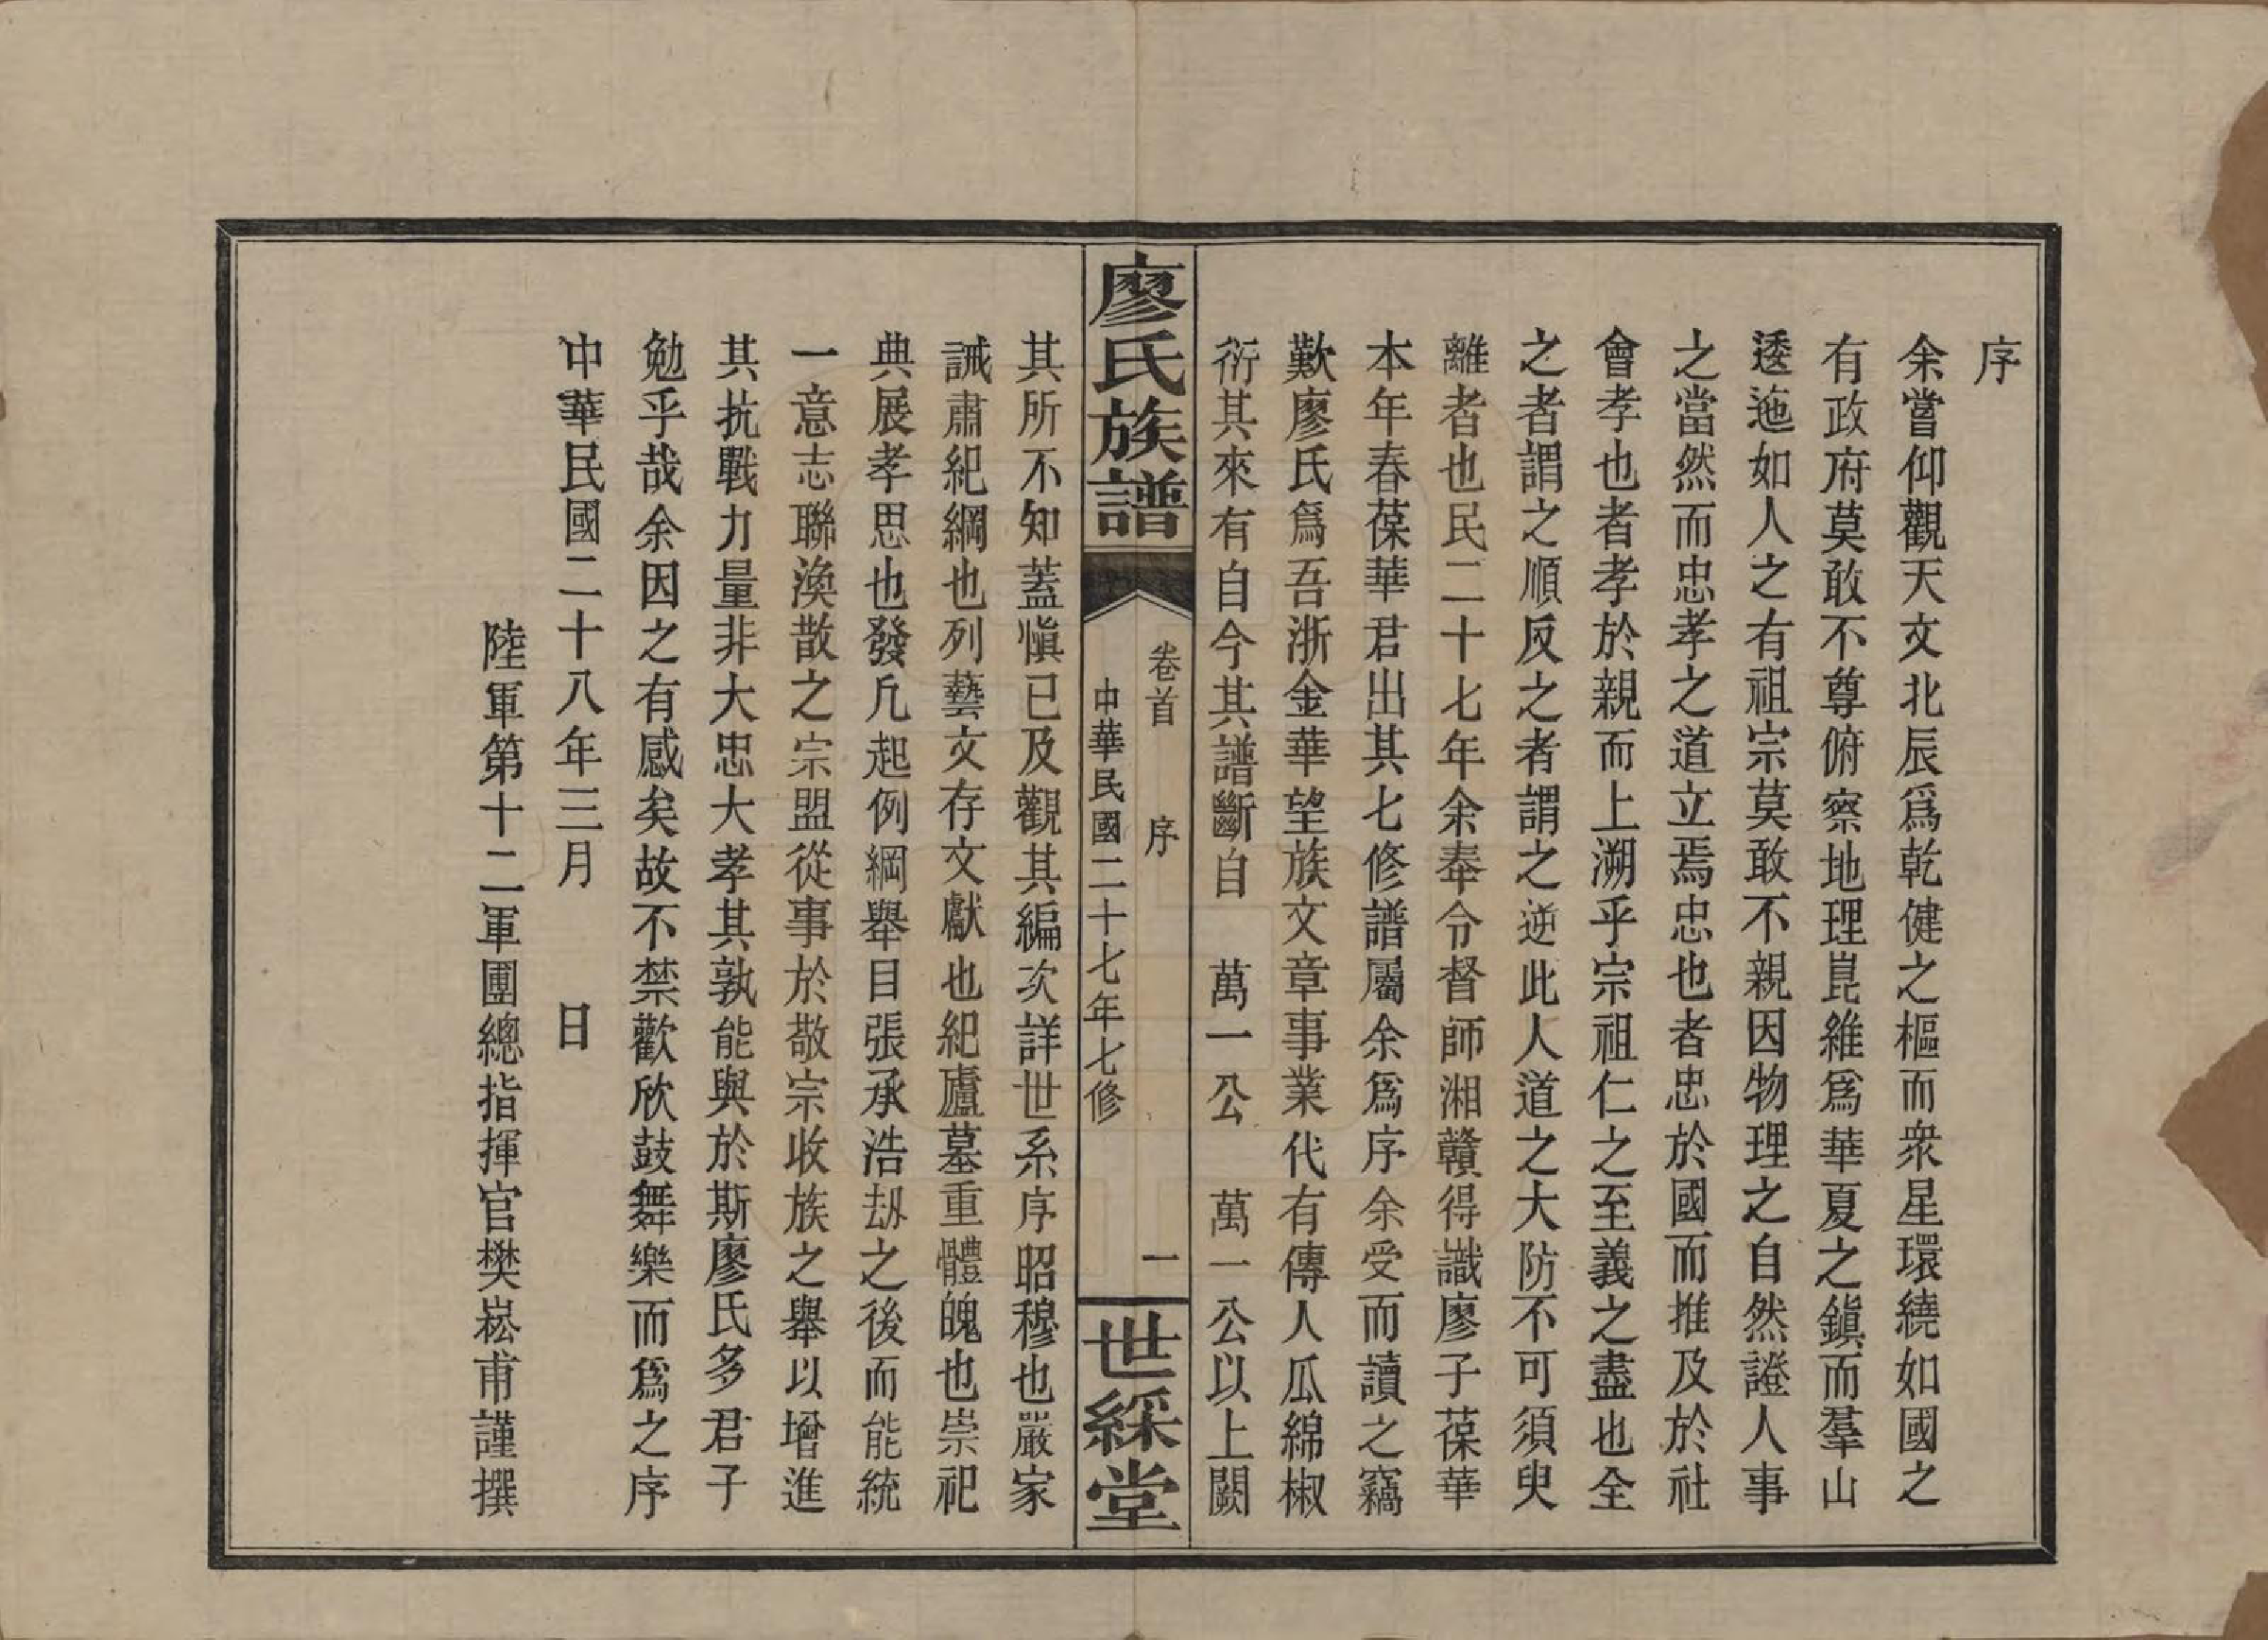 序
余嘗仰觀天文北辰爲乾健之樞而衆星環繞如國之
有政府莫敢不尊俯察地理崑維爲華夏之鎭而羣山
逶迤如人之有祖宗莫敢不親因物理之自然證人事
之當然而忠孝之道立焉忠也者忠於國而推及於社
會孝也者孝於親而上溯乎宗祖仁之至義之盡也全
之者謂之順反之者謂之逆此人道之大防不可須臾
離者也民二十七年余奉令督師湘贛得識廖子葆華
本年春葆華君出其七修譜屬余爲序余受而讀之竊
歎廖氏爲吾浙金華望族文章事業代有傳人瓜綿椒
衍其來有自今其譜斷自 萬一公 萬一公以上闕
廖氏族譜
卷首 序 一
中華民國二十七年七修
世綵堂
其所不知蓋愼已及觀其編次詳世系序昭穆也嚴家
誡肅紀綱也列藝文存文獻也紀廬墓重體魄也崇祀
典展孝思也發凡起例綱舉目張承浩劫之後而能統
一意志聯渙散之宗盟從事於敬宗收族之舉以增進
其抗戰力量非大忠大孝其孰能與於斯廖氏多君子
勉乎哉余因之有感矣故不禁歡欣鼓舞樂而爲之序
中華民國二十八年三月 日
陸軍第十二軍團總指揮官樊崧甫謹撰